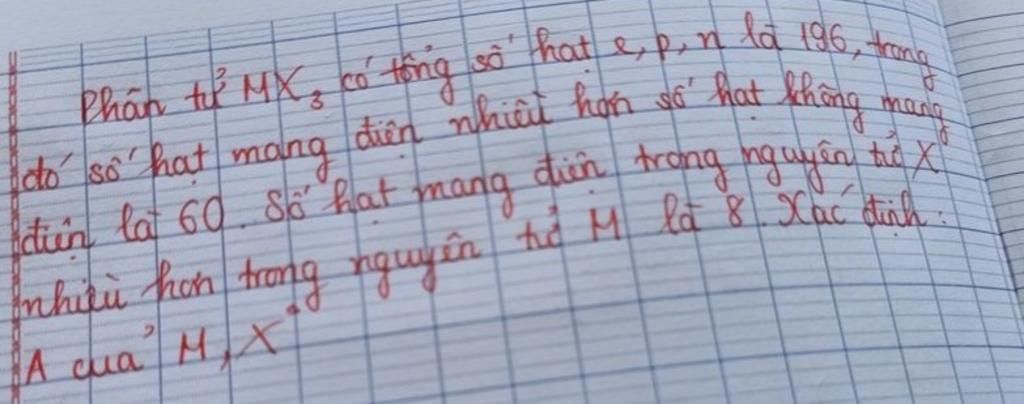 Phân tử MX₃ có tổng số hạt e, p, n là 196, trong
đó số hạt mang điện nhiều hơn số hạt không mang
điện là 60. Số hạt mang điện trong nguyên tử X
nhiều hơn trong nguyên tử M là 8. Xác định:
A của M, X